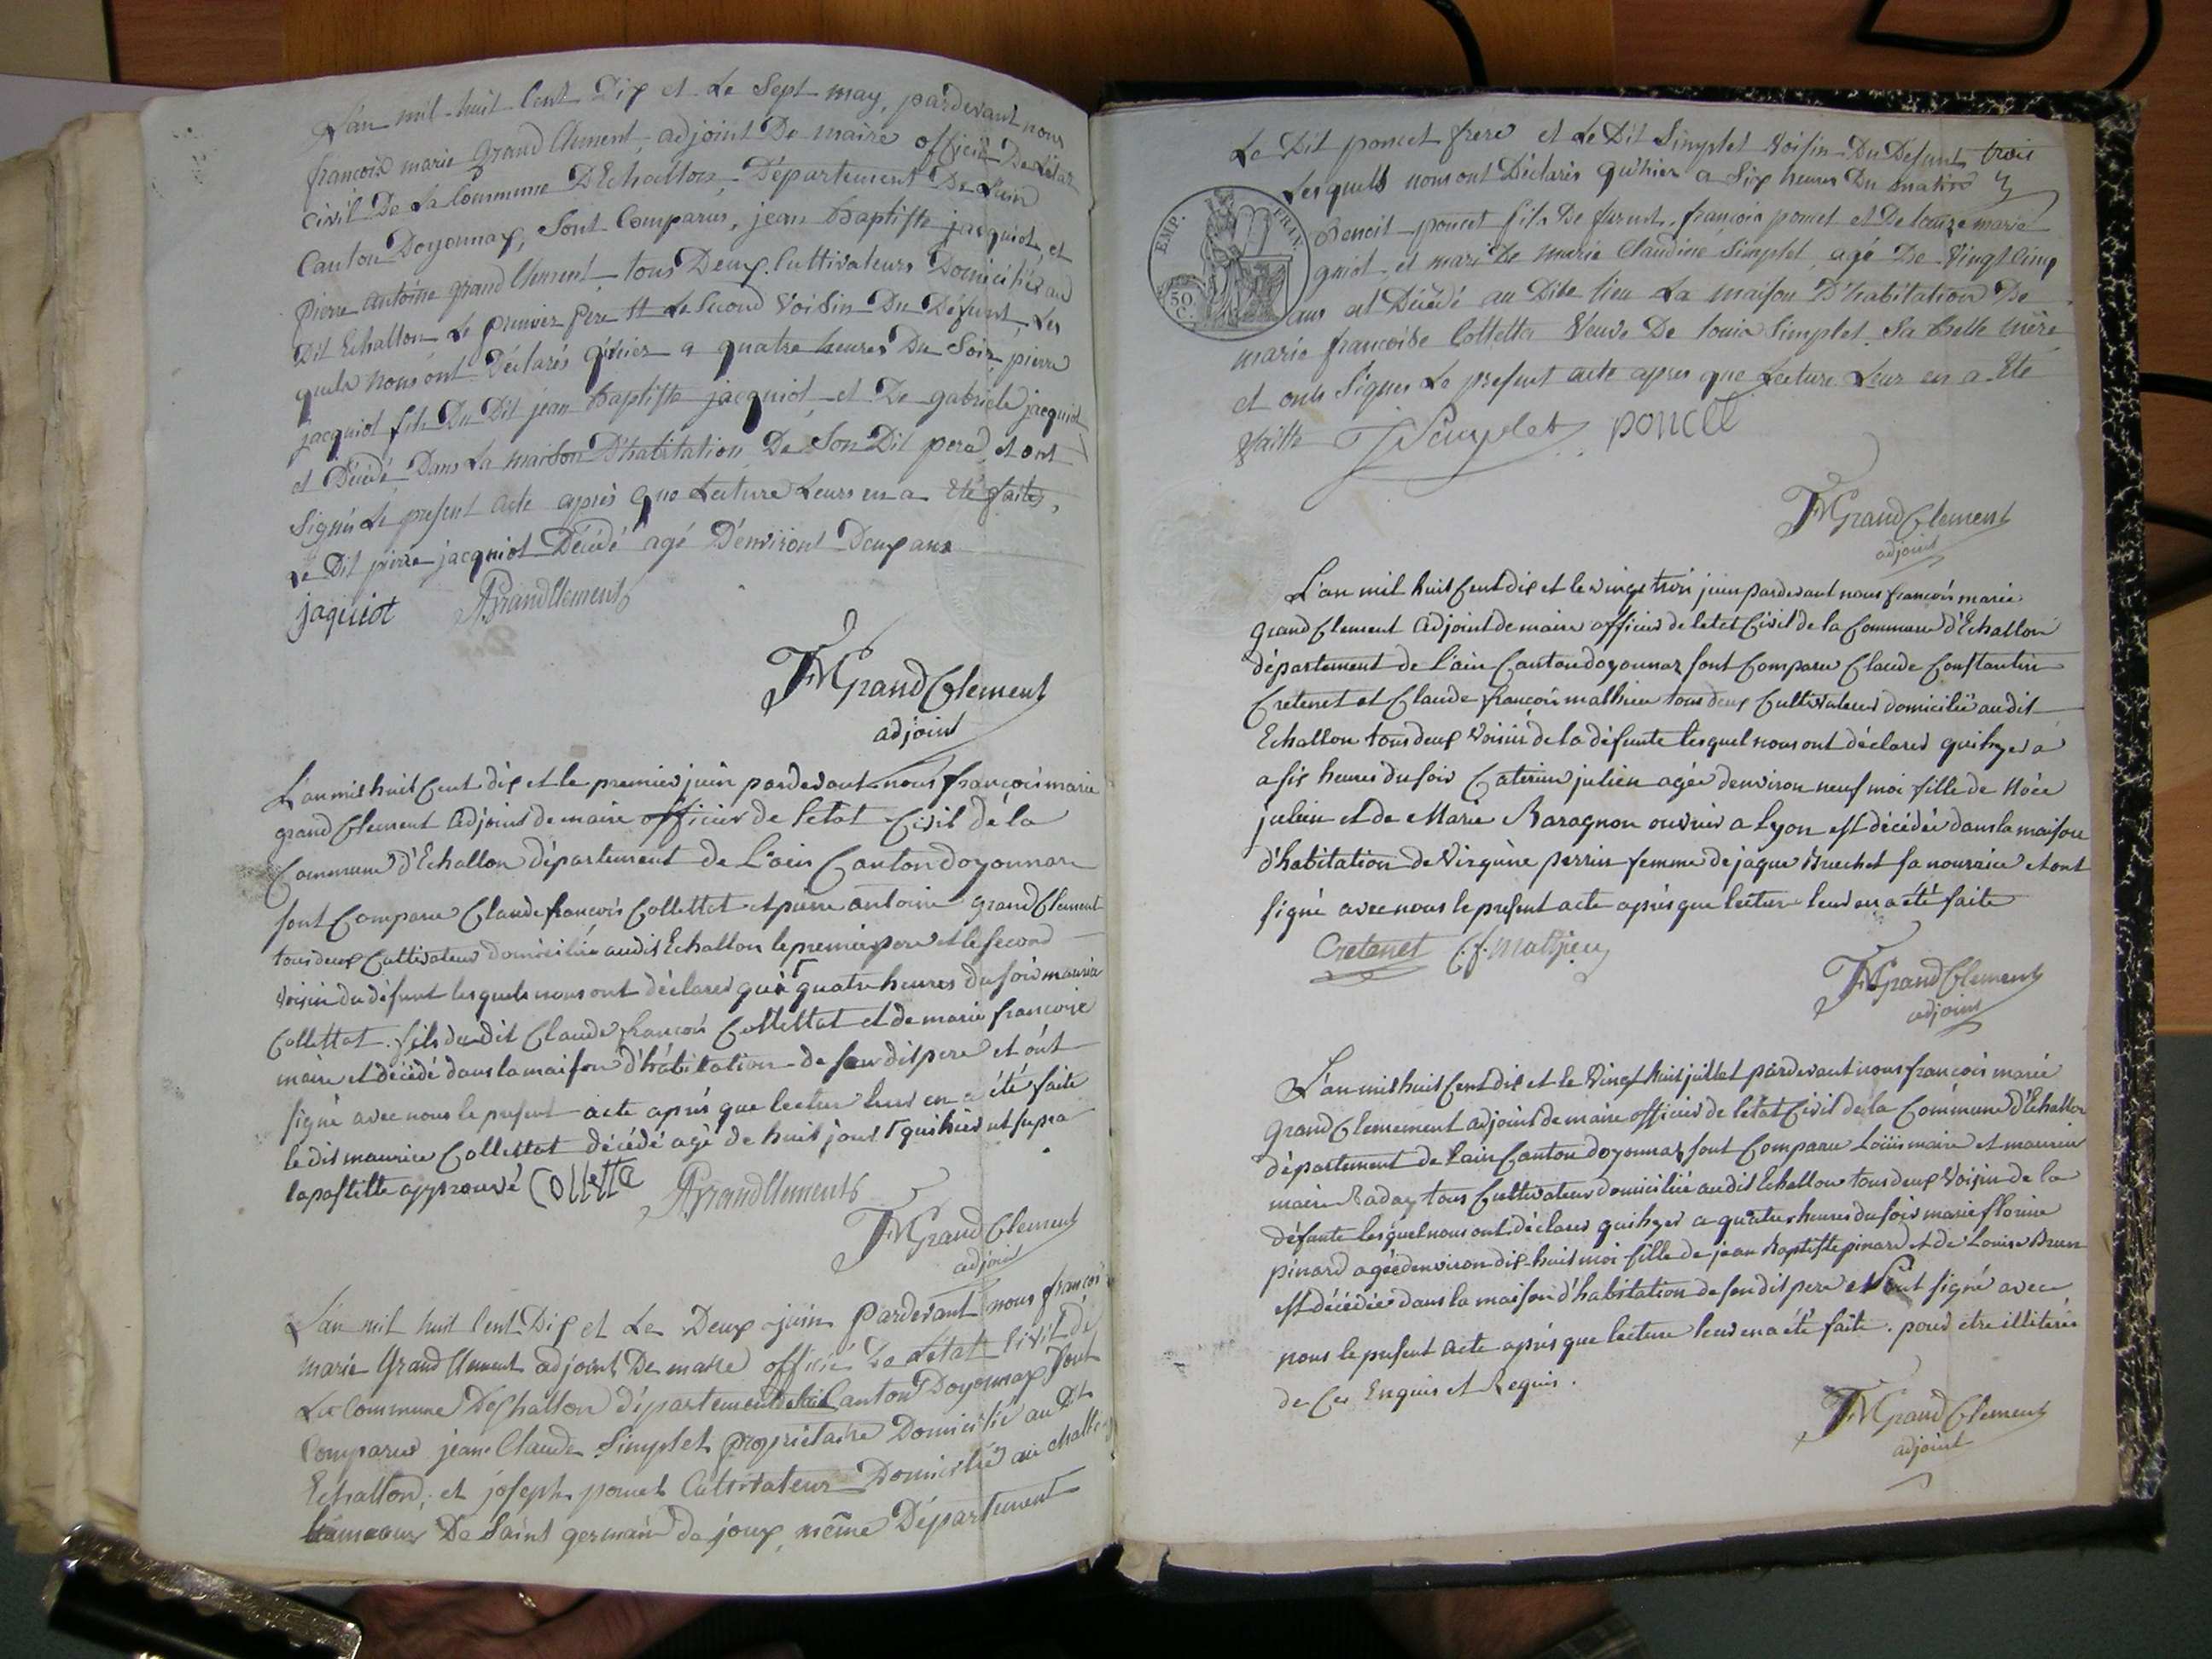 L'an mil huit Cent Dix et Le Sept may, pardevant nous
françois marie Grand Clement, adjoint De maire officié De L'état
civil De La Commune D'Echallon, Département De L'ain
Canton Doyonnax, Sont Comparus, jean Baptiste jacquiot, et
pierre antoine grand Clement tous Deux Cultivateurs Domiciliés au
Dit Echallon Le premier pere et Le Second Voisin Du Défunt, Les
quels nous ont Déclarés qu'hier a quatre heures Du Soir, pierre
jacquiot fils Du Dit jean baptiste jacquiot et De gabriele jacquiot
et Décédé Dans La maison D'habitation De Son Dit pere, et ont
Signés Le present acte après que Lecture Leurs en a Eté faites,
Le Dit pierre jacquiot Décédé agé D'environt Deux ans
jaquiot PAGrandClement
FMGrandClement
adjoint
L'an mil huit Cent dix et le premier juin pardevant nous françois marie
grand Clement adjoint de maire officier de letat Civil de la
Commune d'Echallon département de L'ain Canton doyonnax
sont Comparu Claude françois Collettat et pierre antoine grand Clement
tous deux Cultivateur domiciliés audit Echallon le premier pere et le second
voisin du défunt lesquels nous ont déclarer qu'à quatre heures du soir maurice
Collettat fils du dit Claude françois Collettat et de marie françoise
maire et décédé dans la maison d'habitation de son dit pere et ont
signé avec nous le present acte après que lecture leur en a été faite
le dit maurice Collettat décédé agé de huit jours quihier ut supra
lapostille approuvé Colletta PAGrandClement
FMGrandClement
adjoint
L'an mil huit Cent Dix et Le Deux juin Pardevant nous françois
marie Grand Clement adjoint De maire officié De L'état Civil de
La Commune Dechallon département Canton Doyonnax Sont
Comparus jean Claude Simplet propriétaire Domicilié au Dit
Echallon, et joseph poncet Cultivateur Domicilié au
hameaux De Saint germain de joux, même Département
Le Dit poncet frere et Le Dit Simplet Voisin Du Defunt trois
Lesquels nous ont Déclarés qu'hier a Six heures Du matin
EMP. TRAV.
50
C.
Benoit poncet fils De furent françois poncet et De Louize marie
guiot et mari De marie Claudine Simplet, agé De Vingt Cinq
ans et Décédé au Dite lieu La maison D'habitation De
marie françoise Colletta Veuve De Louis Simplet Sa belle mère
et onts Signes Le present acte apres que Lecture Leur en a Eté
faitte JCSimplet poncet
FMGrandClement
adjoint
L'an mil huit Cent dix et le vingt trois juin pardevant nous françois marie
grand Clement adjoint de maire officier de letat Civil de la Commune d'Echallon
département de L'ain Canton doyonnax sont Comparu Claude Constantin
Cretenet et Claude françois mathieu tous deux Cultivateurs domicilié audit
Echallon tous deux Voisin de la défunte lesquel nous ont déclarer quihyer a
a six heures du soir Caterine julien agée denviron neuf moi fille de
julien et de Marie Baragnon ouvrier a Lyon est décédée dans la maison
d'habitation de Virginie perrin femme de jaque Bruchet sa nourrice et ont
signé avec nous le present acte après que lecture leur en a été faite
Cretenet C.f. Mathieu
FMGrandClement
adjoint
L'an mil huit Cent dix et le Vingt huit juillet pardevant nous françois marie
grand Clemement adjoint de maire officier de letat Civil de la Commune d'Echallon
département de L'ain Canton doyonnax sont Comparu Louis maire et maurice
maire Baday tous Cultivateur domicilié audit Echallon tous deux Voisin de la
défunte lesquel nous ont déclarer quihyer a quatre heures du soir marie florine
pinard agée denviron dix huit moi fille de jean baptiste pinard et de Louise Brun
est décédée dans la maison d'habitation de son dit pere et sont signé avec
nous le present acte après que lecture leur en a été faite. pour etre illiterés
de Ces Enquis et Requis.
FMGrandClement
adjoint